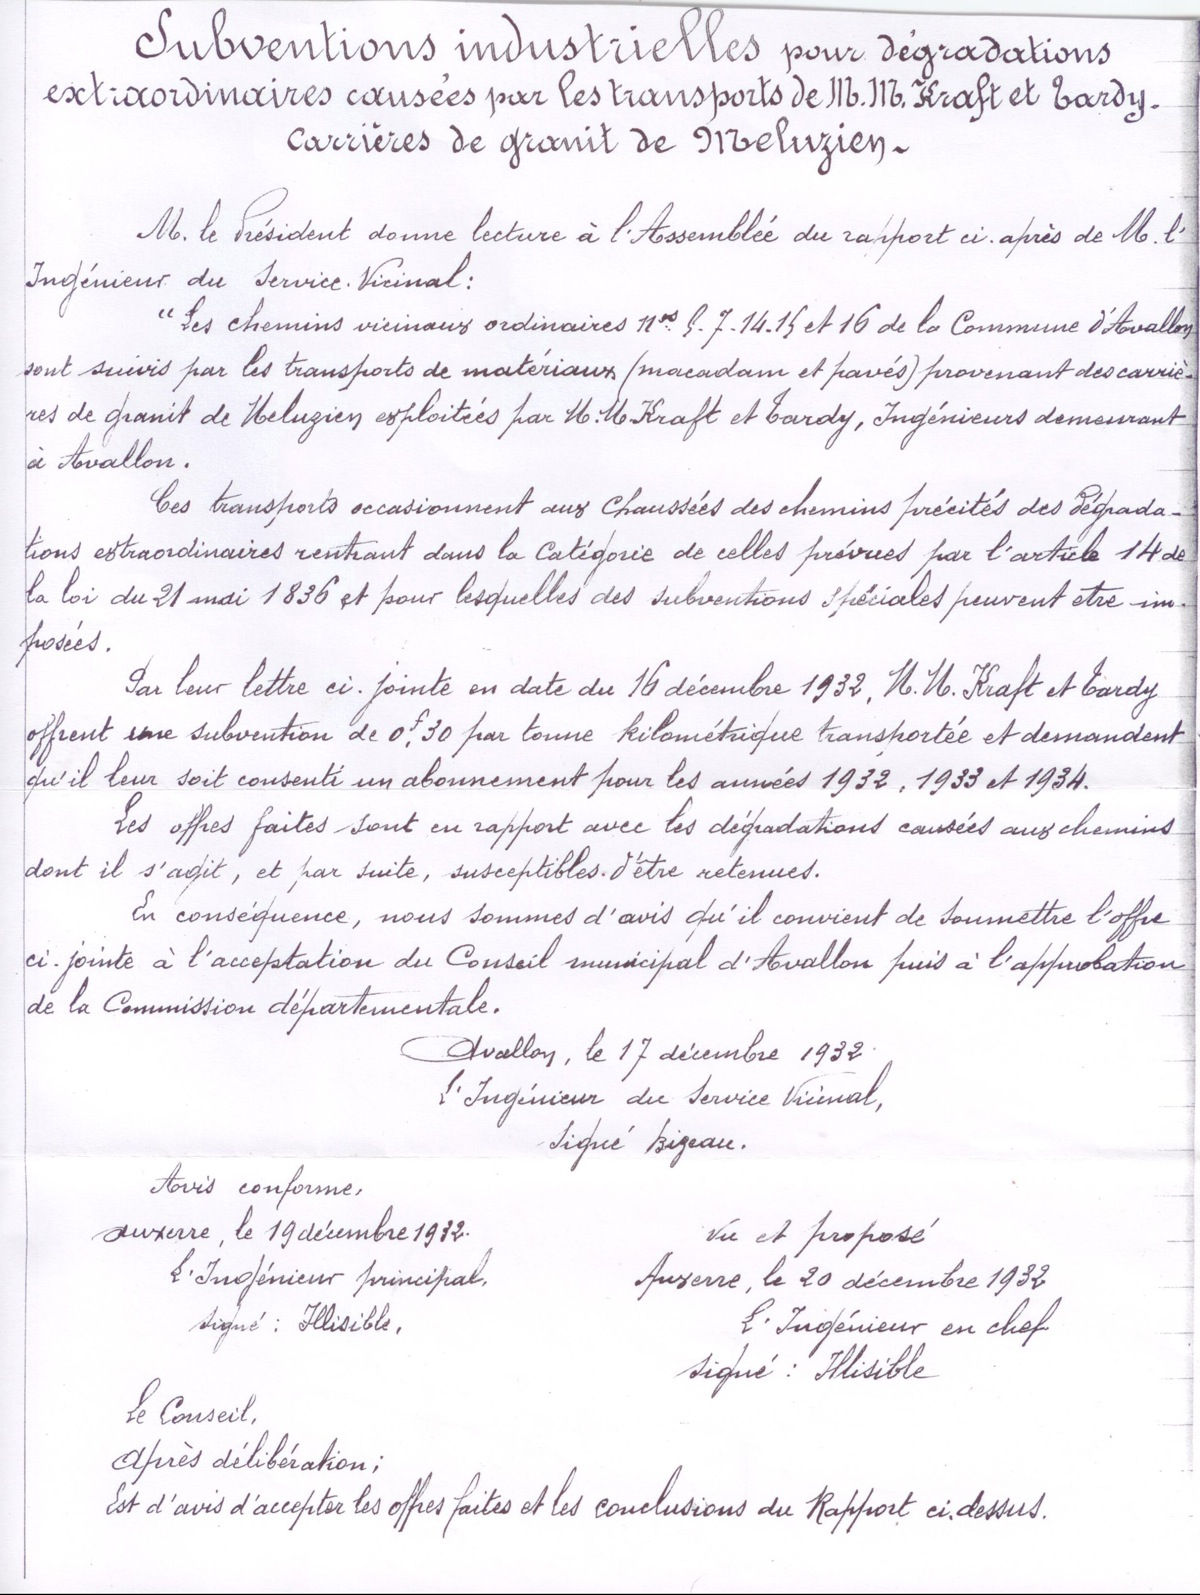 Subventions industrielles pour dégradations
extraordinaires causées par les transports de M.M. Kraft et Tardy.
Carrières de granit de Méluzien.
M. le Président donne lecture à l'Assemblée du rapport ci-après de M. l'
Ingénieur du Service Vicinal :
"Les chemins vicinaux ordinaires nos 5.7.14.15 et 16 de la Commune d'Avallon
sont suivis par les transports de matériaux (macadam et pavés) provenant des carriè-
res de granit de Méluzien exploitées par M.M. Kraft et Tardy, Ingénieurs demeurant
à Avallon.
Ces transports occasionnent aux chaussées des chemins précités des dégrada-
tions extraordinaires rentrant dans la catégorie de celles prévues par l'article 14 de
la loi du 21 mai 1836 et pour lesquelles des subventions spéciales peuvent etre im-
posées.
Par leur lettre ci-jointe en date du 16 décembre 1932, M.M. Kraft et Tardy
offrent une subvention de 0f,30 par tonne kilométrique transportée et demandent
qu'il leur soit consenti un abonnement pour les années 1932, 1933 et 1934.
Les offres faites sont en rapport avec les dégradations causées aux chemins
dont il s'agit, et par suite, susceptibles d'être retenues.
En conséquence, nous sommes d'avis qu'il convient de soumettre l'offre
ci-jointe à l'acceptation du Conseil municipal d'Avallon puis à l'approbation
de la Commission départementale.
Avallon, le 17 décembre 1932
L'Ingénieur du Service Vicinal,
Signé Bizeau.
Avis conforme,
Auxerre, le 19 décembre 1932.
L'Ingénieur principal,
signé : Illisible,
Vu et proposé
Auxerre, le 20 décembre 1932
L'Ingénieur en chef
signé : Illisible
Le Conseil,
Après délibération ;
Est d'avis d'accepter les offres faites et les conclusions du Rapport ci-dessus.